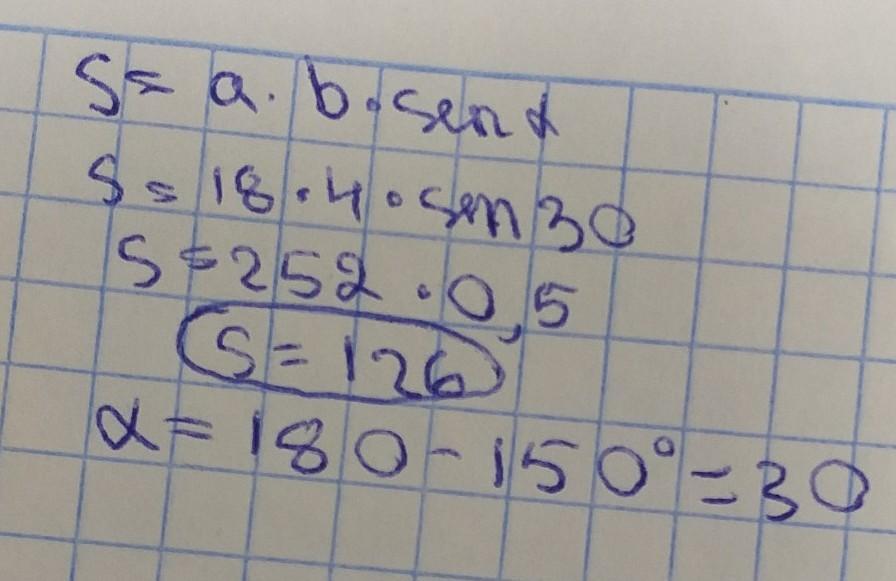 S = a · b · sen α
S = 18 · 4 · sen 30
S = 252 · 0,5
S = 126
α = 180 - 150° = 30